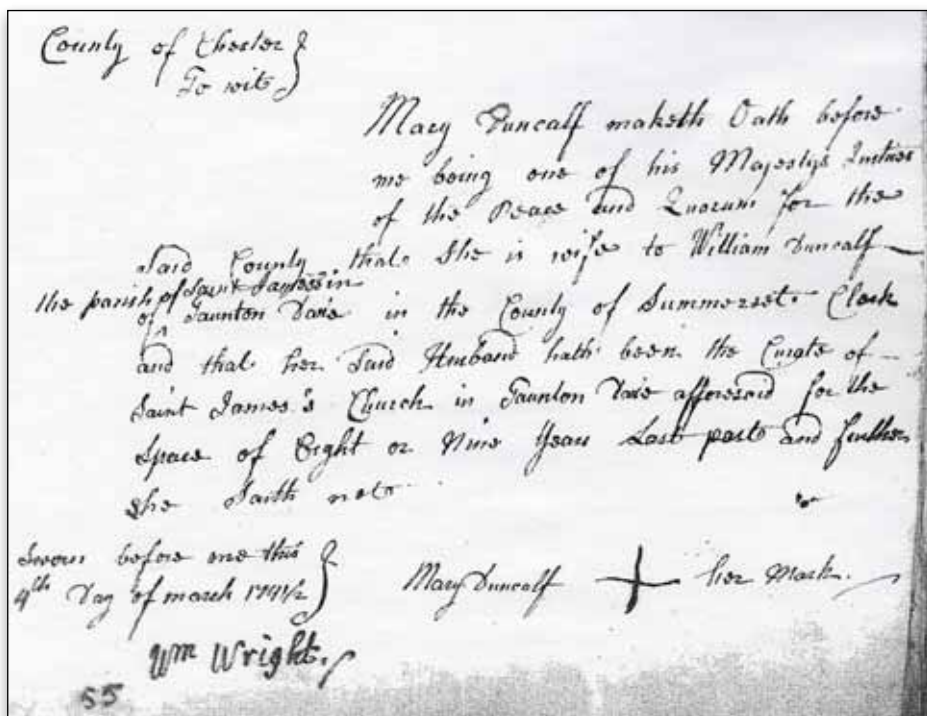 County of Chester
To wit
Mary Duncalf maketh Oath before
me being one of his Majestys Justices
of the Peace and Quorum for the
Said County that She is wife to William Duncalf
the parish of Saint James in
of Taunton Deane in the County of Summerset Clerk
and that her Said Husband hath been the Curate of
Saint James's Church in Taunton Deane afforesaid for the
Space of Eight or Nine Years Last past and further
She Saith not
Sworn before me this
4th Day of march 1741/2
Mary Duncalf + her Mark
Wm Wright
55